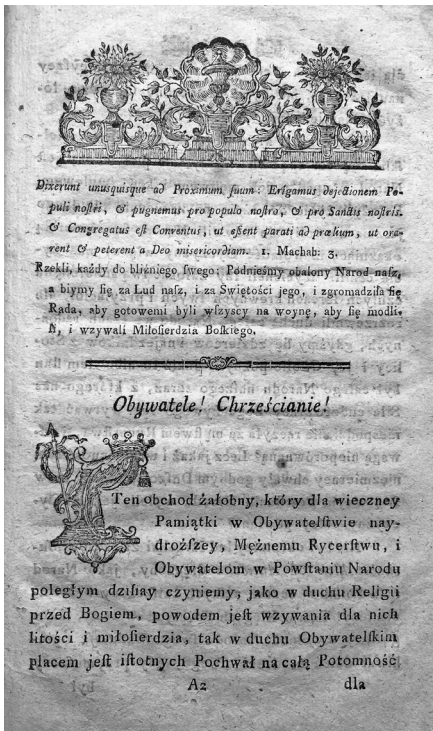 Dixerunt unusquisque ad Proximum ſuum: Erigamus dejectionem Po-
puli noſtri, & pugnemus pro populo noſtro, & pro Sanctis noſtris.
& Congregatus eſt Conventus, ut eſſent parati ad prœlium, ut ora-
rent & peterent a Deo miſericordiam. 1. Machab: 3.
Rzekli, każdy do bliźniego ſwego: Podnieśmy obalony Narod naſz,
a biymy ſię za Lud naſz, i za Swiętości jego, i zgromadziła ſię
Rada, aby gotowemi byli wſzyscy na woynę, aby ſię modli-
li, i wzywali Miłoſierdzia Boſkiego.
Obywatele! Chrześcianie!
Ten obchod żałobny, który dla wieczney
Pamiątki w Obywatelſtwie nay-
droźſzey, Mężnemu Rycerſtwu, i
Obywatelom w Powſtaniu Narodu
poległym dzisiay czyniemy, jako w duchu Religii
przed Bogiem, powodem jeſt wzywania dla nich
litości i miłoſierdzia, tak w duchu Obywatelſkim
placem jeſt iſtotnych Pochwał na całą Potomność
A2 dla